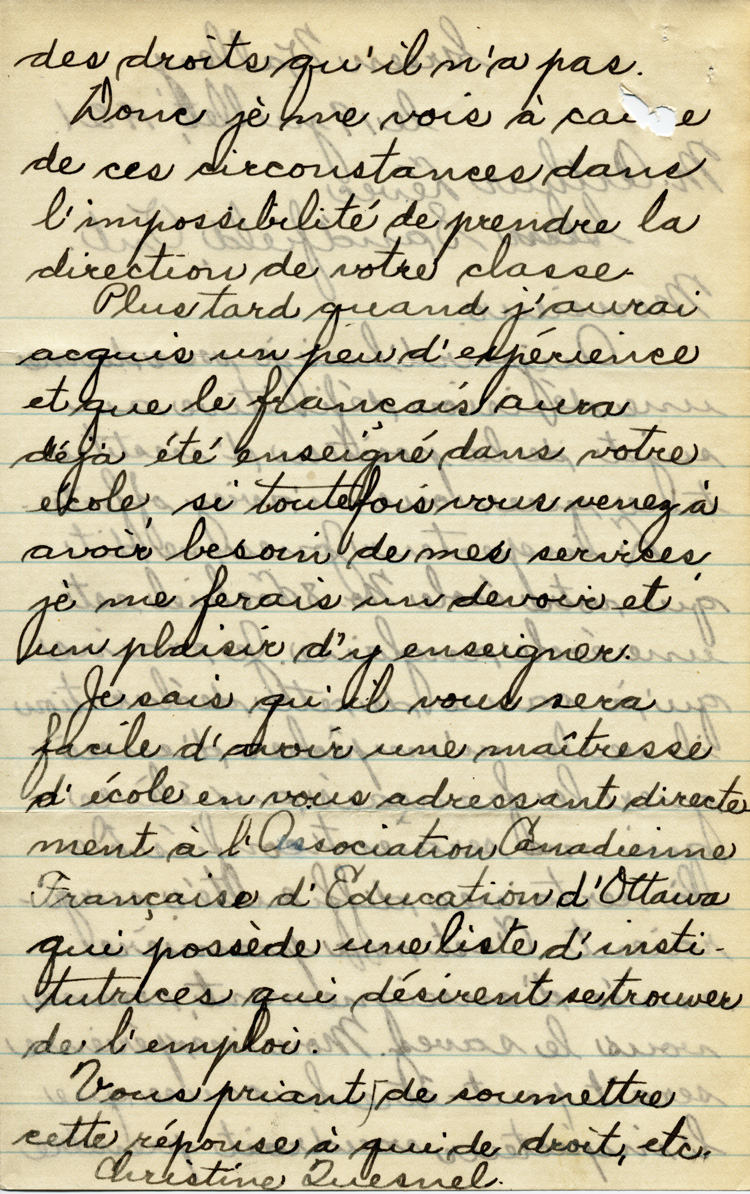 des droits qu'il n'a pas.
Donc jè me vois à cause
de ces circonstances dans
l'impossibilité de prendre la
direction de votre classe.
Plus tard quand j'aurai
acquis un peu d'expérience
et que le français aura
déjà été enseigné dans votre
école, si toutefois vous venez à
avoir besoin de mes services,
jè me ferais un devoir et
un plaisir d'y enseigner.
Je sais qu'il vous sera
facile d'avoir une maîtresse
d'école en vous adressant directe
ment à l'Association Canadienne
Française d'Éducation d'Ottawa
qui possède une liste d'insti-
tutrices qui désirent se trouver
de l'emploi.
Vous priant de soumettre
cette réponse à qui de droit, etc.
Christine Quesnel.